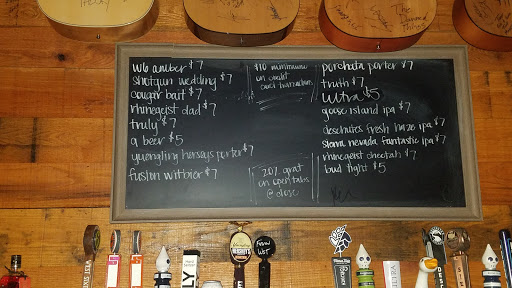 W6 amber $7
shotgun wedding $7
cougar bait $7
rhinegeist dad $7
truly $7
a beer $5
yuengling hersheys porter $7
fusion witbier $7
$10 minimum
on credit
card transactions
20% grat
on open tabs
@ close
porchata porter $7
truth $7
ultra $5
goose island ipa $7
deschutes fresh haze ipa $7
sierra nevada fantastic ipa $7
rhinegeist cheetah $7
bud light $5
HERSHEY'S